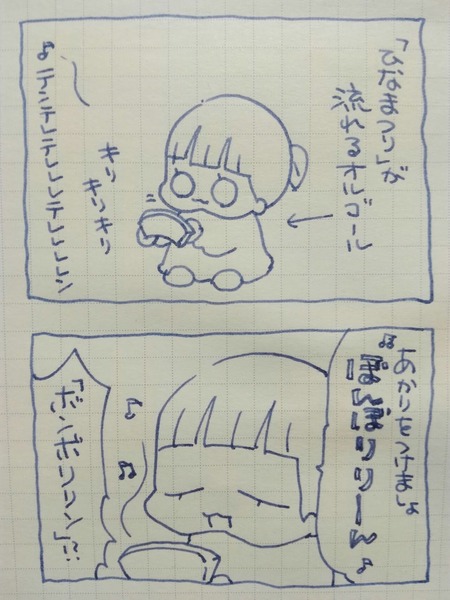 「ひなまつり」が
流れるオルゴール
キリ
キリキリ
♪テンテンテレレンテレレレレン
あかりをつけましょ
ぼんぼりりーん♪
「ボンボココン」…